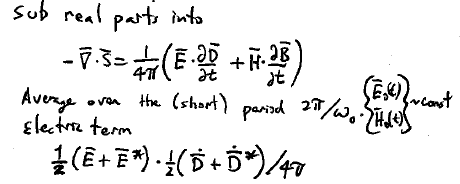 Sub real parts into
-∇̄·S̄ = 1/4π (Ē·∂D̄/∂t + H̄·∂B̄/∂t)
Average over the (short) period 2π/ω₀. {Ē₀(t) H̄₀(t)} ~const
Electric term
½(Ē+Ē*)·½(Ḋ̄+Ḋ̄*)/4π